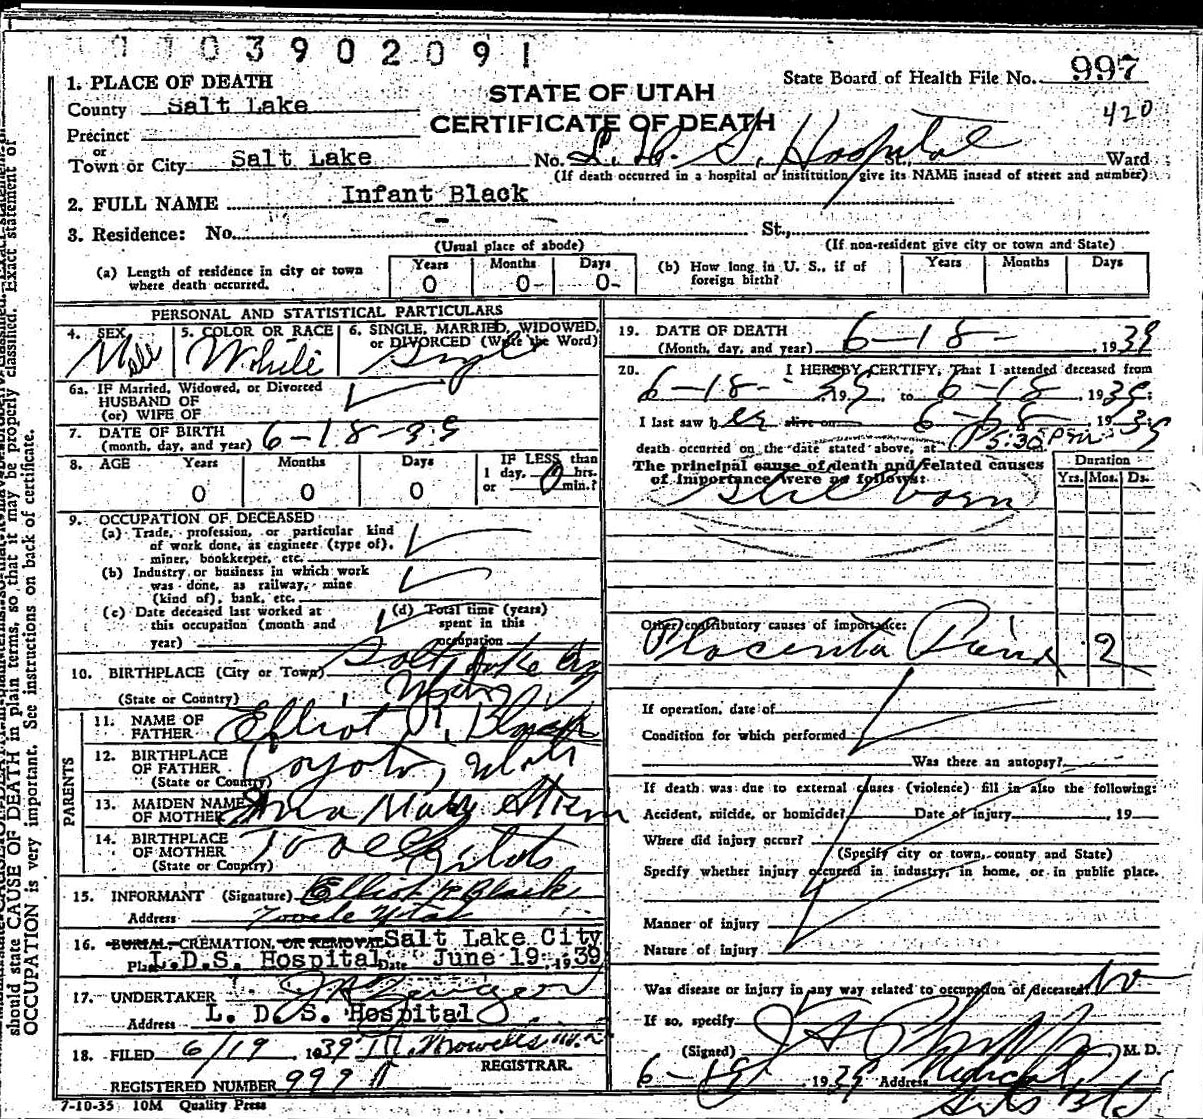 1 1 0 3 9 0 2 0 9 1
1. PLACE OF DEATH
County Salt Lake
Precinct
or
Town or City Salt Lake
STATE OF UTAH
CERTIFICATE OF DEATH
State Board of Health File No. 997
420
No. L. D. S. Hospital St. Ward
(If death occurred in a hospital or institution, give its NAME insead of street and number)
2. FULL NAME Infant Black
3. Residence: No. St.,
(Usual place of abode) (If non-resident give city or town and State)
(a) Length of residence in city or town where death occurred.
Years Months Days
0 0 0
(b) How long in U. S., if of foreign birth?
Years Months Days
PERSONAL AND STATISTICAL PARTICULARS
4. SEX Male
5. COLOR OR RACE White
6. SINGLE, MARRIED, WIDOWED, or DIVORCED (Write the Word) Single
6a. IF Married, Widowed, or Divorced
HUSBAND OF
(or) WIFE OF
7. DATE OF BIRTH
(month, day, and year) 6-18-39
8. AGE Years Months Days IF LESS than
1 day, 0 hrs.
or min.?
0 0 0
9. OCCUPATION OF DECEASED
(a) Trade, profession, or particular kind
of work done, as engineer (type of),
miner, bookkeeper, etc.
(b) Industry or business in which work
was done, as railway, mine
(kind of), bank, etc.
(c) Date deceased last worked at
this occupation (month and
year)
(d) Total time (years)
spent in this
occupation
10. BIRTHPLACE (City or Town) Salt Lake City
(State or Country) Utah
PARENTS
11. NAME OF FATHER Elliot R. Black
12. BIRTHPLACE OF FATHER Coyoto, Utah
(State or Country)
13. MAIDEN NAME OF MOTHER Mary
14. BIRTHPLACE OF MOTHER Tooele Utah
(State or Country)
15. INFORMANT (Signature) Elliot R Black
Address Tooele Utah
16. BURIAL, CREMATION, OR REMOVAL Salt Lake City
Place L.D.S. Hospital Date June 19, 1939
17. UNDERTAKER
Address L. D. S. Hospital
18. FILED 6/19 1939 REGISTRAR.
REGISTERED NUMBER 997
7-10-35 10M Quality Press
19. DATE OF DEATH
(Month, day, and year) 6-18- 1939
20. I HEREBY CERTIFY, That I attended deceased from
6-18- 1939, to 6-18, 1939:
I last saw h er alive on 6-18 1939
death occurred on the date stated above, at 5:30 Pm
The principal cause of death and related causes
of importance were as follows:
Stillborn
Duration
Yrs. Mos. Ds.
Other contributory causes of importance:
Placenta 2
If operation, date of
Condition for which performed
Was there an autopsy?
If death was due to external causes (violence) fill in also the following:
Accident, suicide, or homicide? Date of injury , 19
Where did injury occur?
(Specify city or town, county and State)
Specify whether injury occurred in industry, in home, or in public place.
Manner of injury
Nature of injury
Was disease or injury in any way related to occupation of deceased? No
If so, specify
(Signed) M. D.
6-19 1939 Address Medical
Arts Bld
should state CAUSE OF DEATH in plain terms, so that it may be properly classified. Exact statement of
OCCUPATION is very important. See instructions on back of certificate.